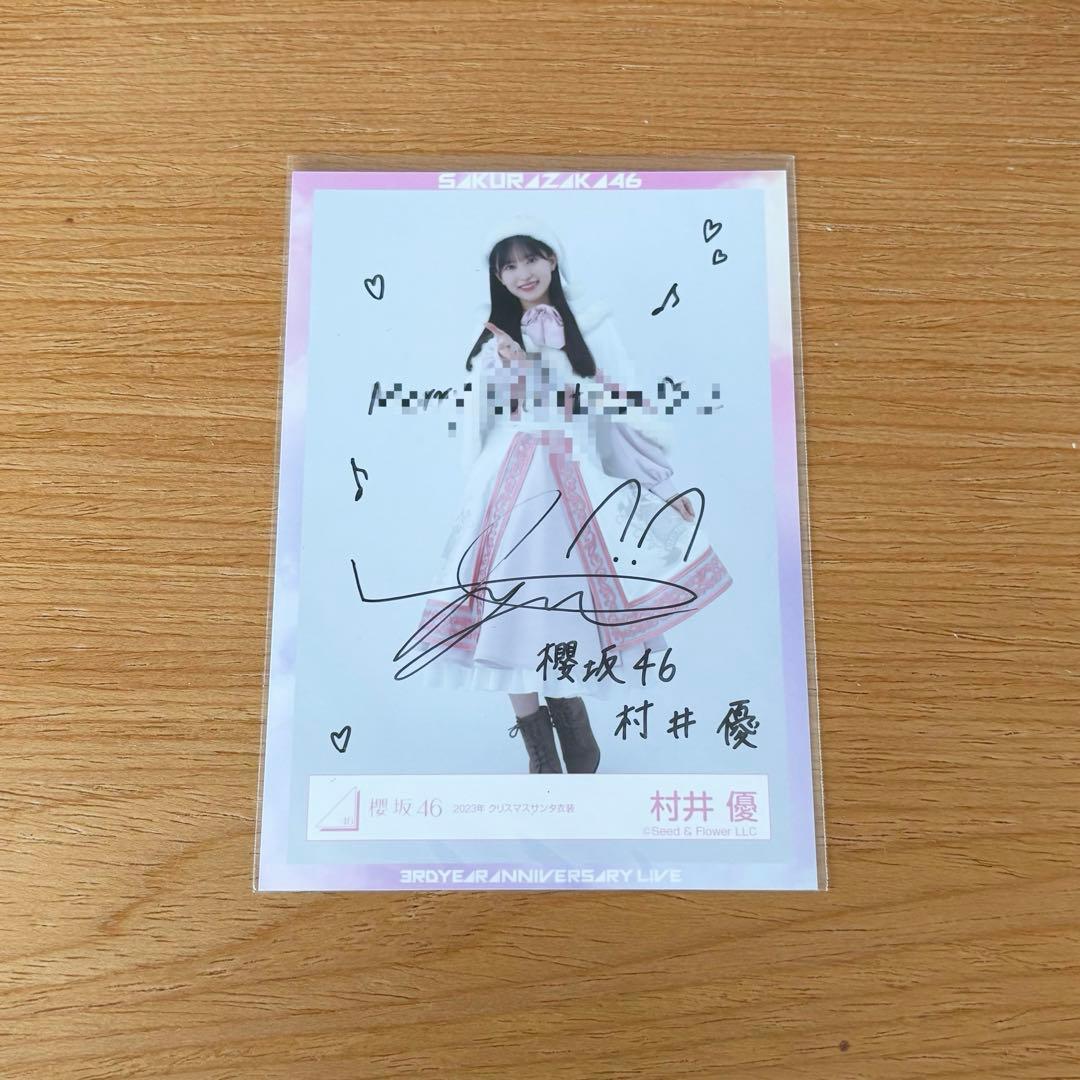 SAKURAZAKA46
櫻坂46
村井 優
櫻坂46 2023年 クリスマスサンタ衣装 村井 優
©Seed & Flower LLC
3RDYEARANNIVERSARY LIVE